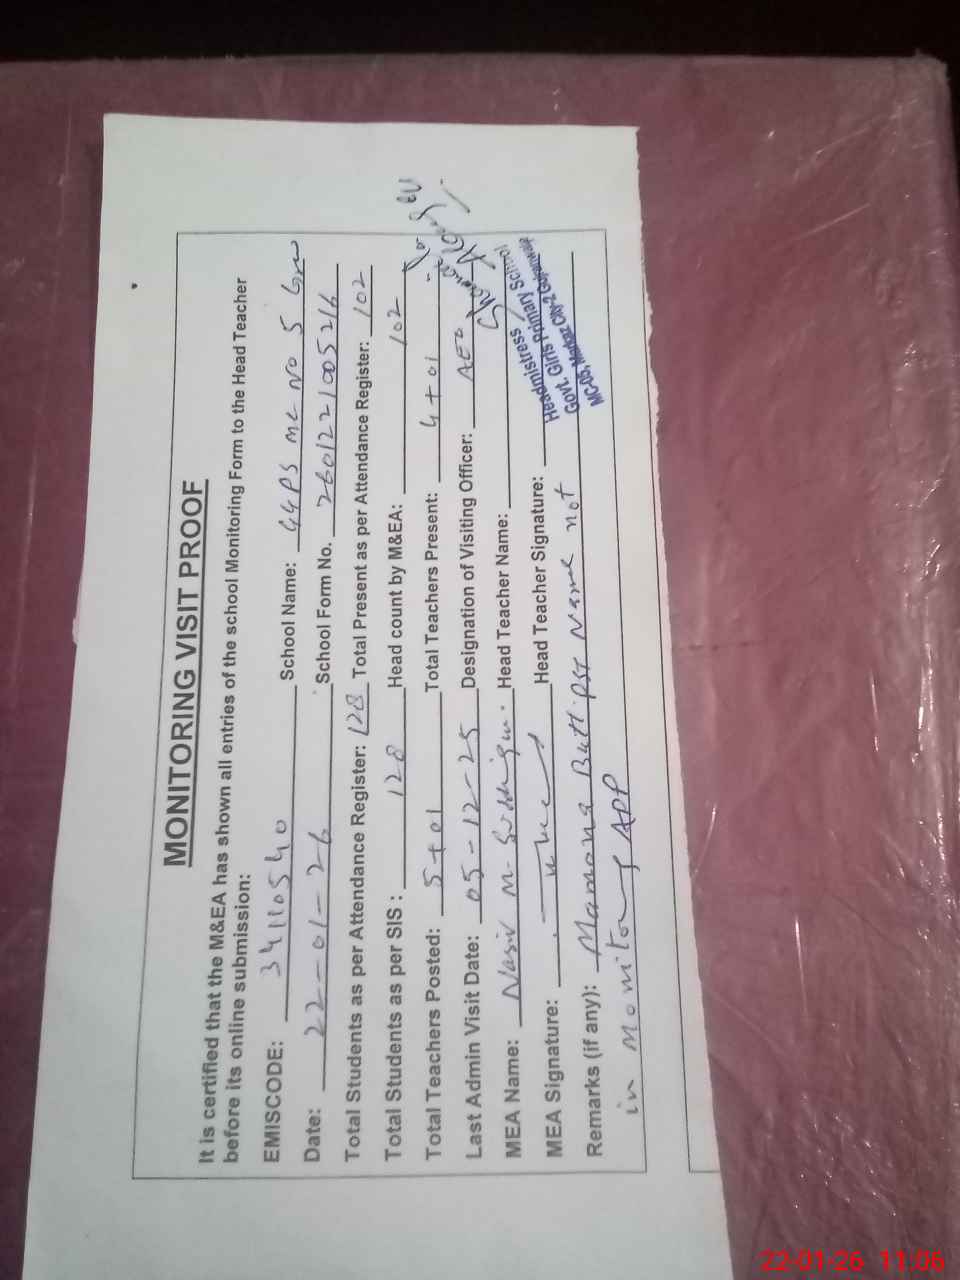 MONITORING VISIT PROOF
It is certified that the M&EA has shown all entries of the school Monitoring Form to the Head Teacher
before its online submission:
EMISCODE: 34110540 School Name: GGPS MC No 5 Grw
Date: 22-01-26 School Form No. 2601221005216
Total Students as per Attendance Register: 128 Total Present as per Attendance Register: 102
Total Students as per SIS : 128 Head count by M&EA: 102
Total Teachers Posted: 5+01 Total Teachers Present: 4+01
Last Admin Visit Date: 05-12-25 Designation of Visiting Officer: AEO
MEA Name: Nasir M. Head Teacher Name:
MEA Signature: Head Teacher Signature:
Headmistress
Govt. Girls Primary School
Markaz City-2 Gujranwala
Remarks (if any): Mamona Butt PST Name not
in monitoring APP
22-01-26 11:06